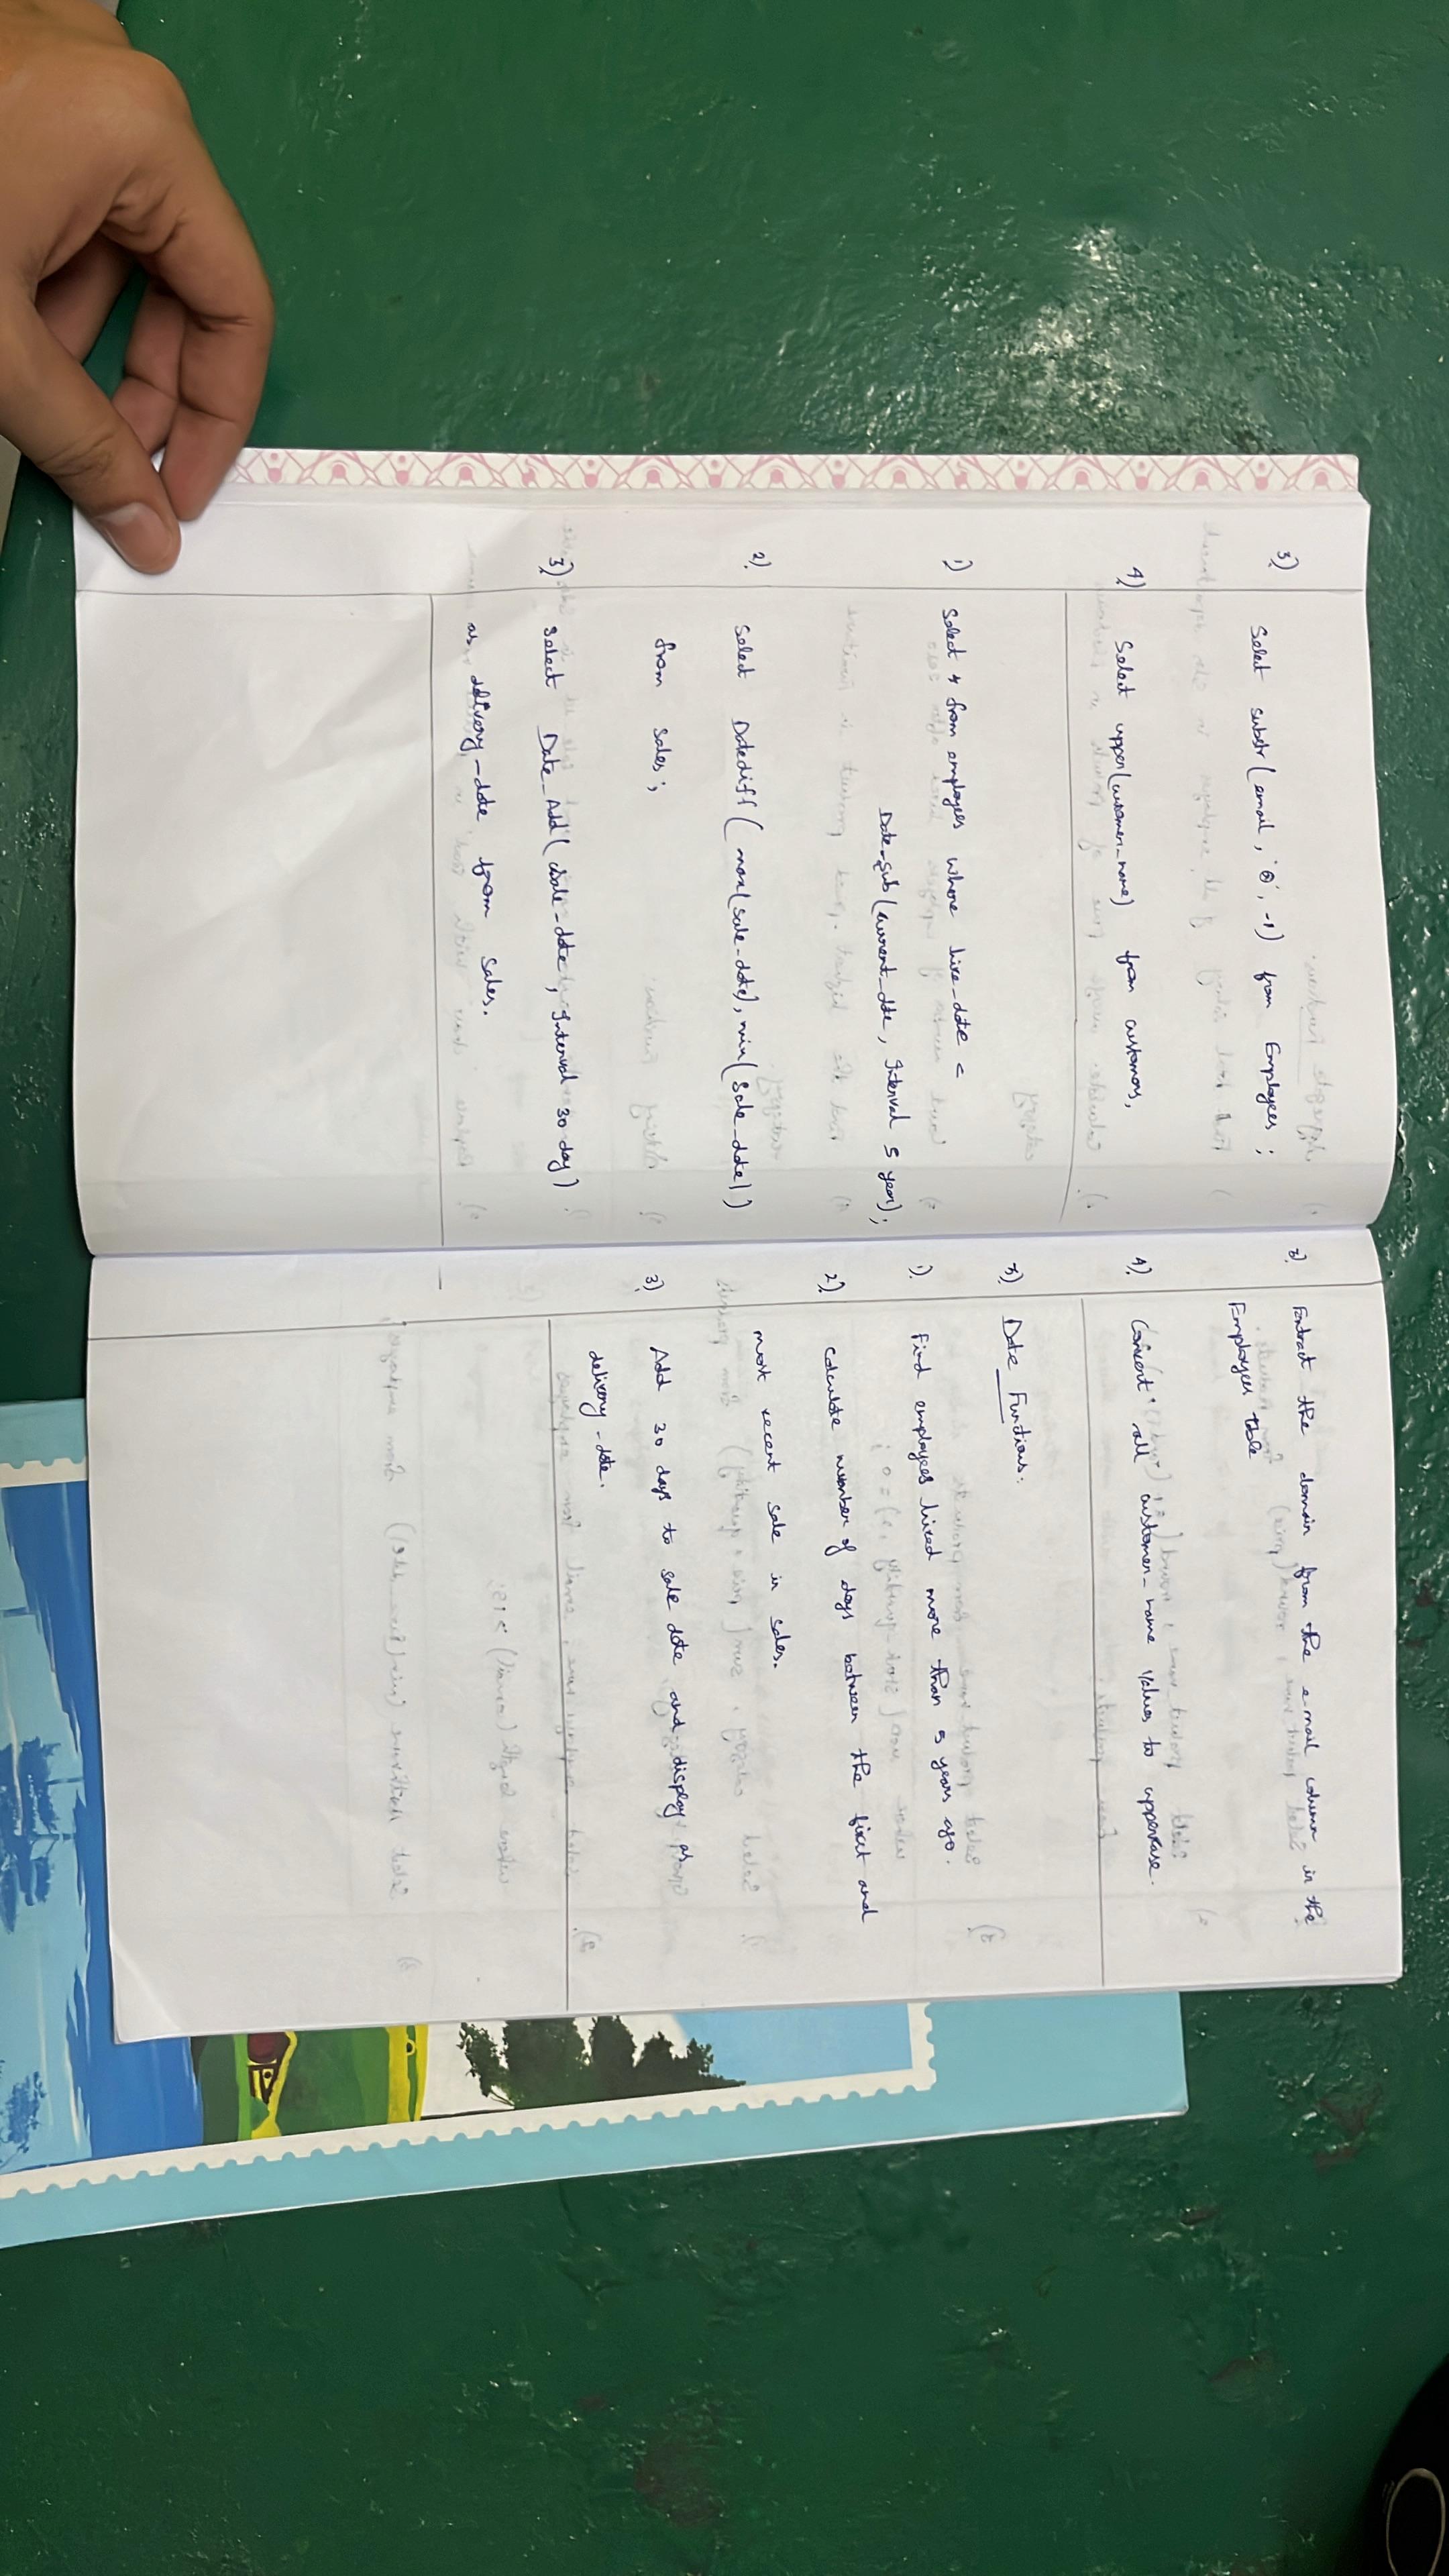 3)
Select substr(email, '@', -1) from Employees;
4) Select upper(customer_name) from customers,
1) Select * from employees where hire_date <
Date_sub(current_date, Interval 5 year);
2) Select Datediff(max(sale_date), min(sale_date))
from sales;
3) Select Date_Add(sale_date, Interval 30 day)
as delivery_date from sales.
3) Extract the domain from the e-mail column in the
Employees table
4) Convert all customer_name values to uppercase.
3) Date Functions:
1) Find employees hired more than 5 years ago.
2) Calculate number of days between the first and
most recent sale in sales.
3) Add 30 days to sale date and display as
delivery_date.